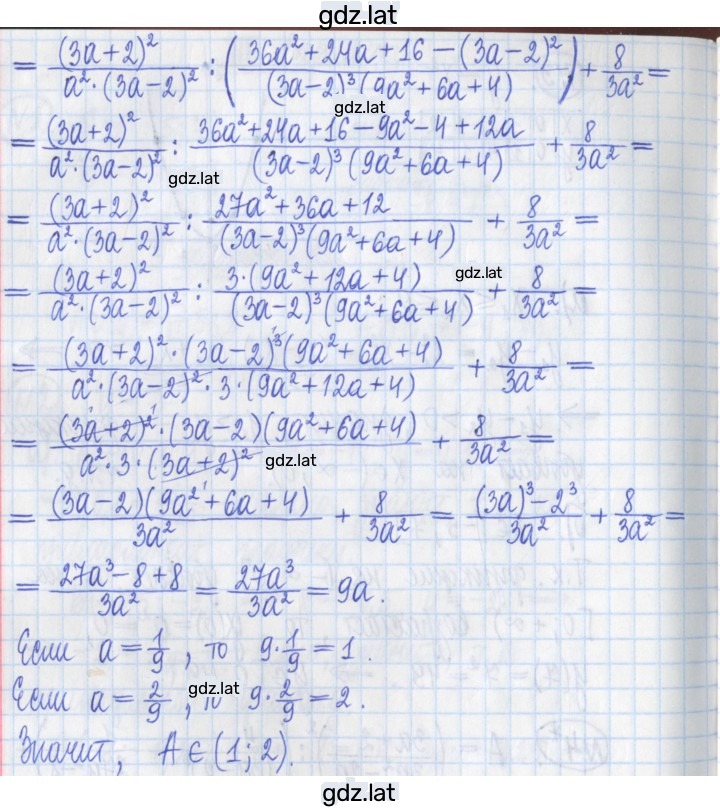 gdz.lat
= (3a+2)²/(a²·(3a−2)²) : ((36a²+24a+16−(3a−2)²)/((3a−2)³(9a²+6a+4))) + 8/(3a²) =
gdz.lat
= (3a+2)²/(a²·(3a−2)²) : (36a²+24a+16−9a²−4+12a)/((3a−2)³(9a²+6a+4)) + 8/(3a²) =
gdz.lat
= (3a+2)²/(a²·(3a−2)²) : (27a²+36a+12)/((3a−2)³(9a²+6a+4)) + 8/(3a²) =
= (3a+2)²/(a²·(3a−2)²) : (3·(9a²+12a+4))/((3a−2)³(9a²+6a+4)) + 8/(3a²) =
gdz.lat
= ((3a+2)²·(3a−2)³(9a²+6a+4))/(a²·(3a−2)²·3·(9a²+12a+4)) + 8/(3a²) =
= ((3a+2)²·(3a−2)(9a²+6a+4))/(a²·3·(3a+2)²) + 8/(3a²) =
gdz.lat
= ((3a−2)(9a²+6a+4))/(3a²) + 8/(3a²) = ((3a)³−2³)/(3a²) + 8/(3a²) =
= (27a³−8+8)/(3a²) = 27a³/(3a²) = 9a.
Если a = 1/9, то 9·1/9 = 1.
Если a = 2/9, то 9·2/9 = 2.
gdz.lat
Значит, A ∈ (1; 2).
gdz.lat